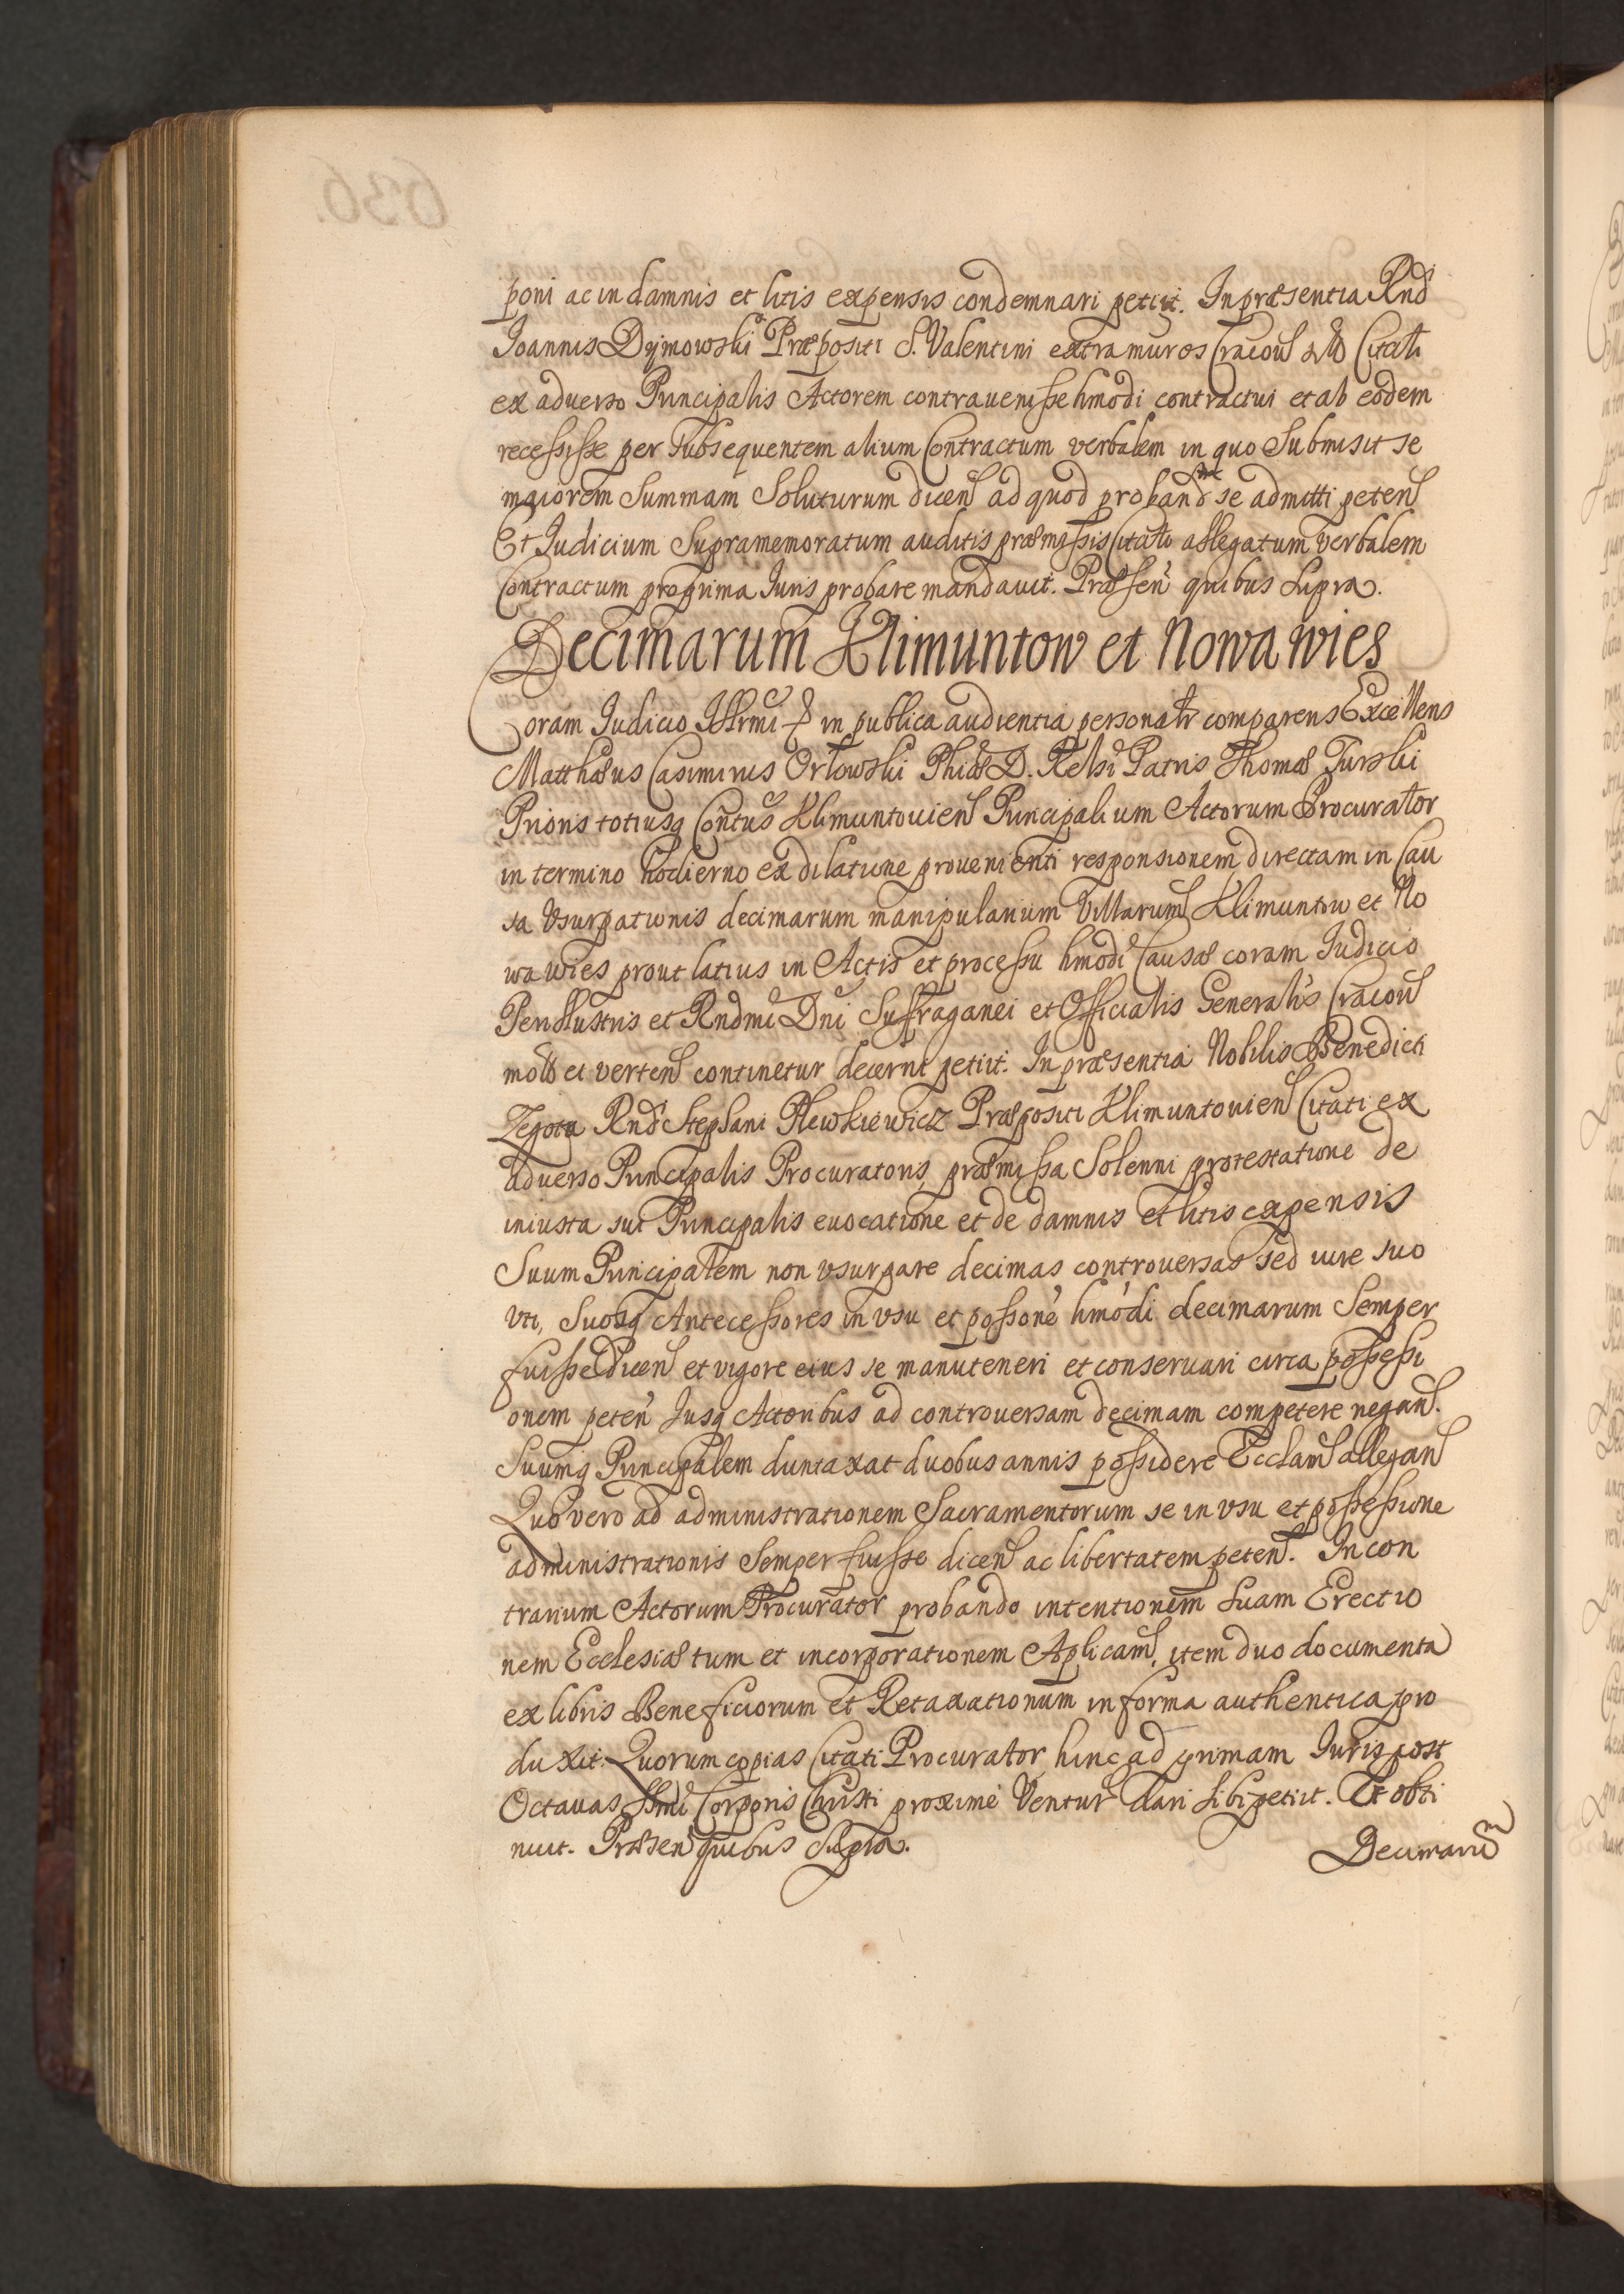 poni ac in damnis et litis expensis condemnari petiit. In præsentia Rndi
Joannis Dymowski Præpositi S. Valentini extra muros Cracoū Citati
ex aduerso Principalis Actorem contrauenisse hmodi contractui et ab eodem
recessisse per subsequentem alium Contractum verbalem in quo Submisit se
maiorem Summam Soluturum dicen ad quod proband se admitti peten
Et Judicium Supramemoratum auditis præmissis Citato allegatum verbalem
Contractum pro prima Juris probare mandauit. Præsen quibus supra.
Decimarum Klimuntow et Nowa wies
Coram Judicio Illrmi & in publica audientia personatr comparens Excellens
Matthæus Casimirus Orłowski Phiæ D. Relsi Patris Thomæ Turski
Prioris totiusq Contus Klimuntouien Principalium Actorum Procurator
in termino hodierno ex dilatione prouenienti responsionem directam in Cau
sa Vsurpationis decimarum manipularium Villarum Klimuntow et No
wa wies prout latius in Actis et processu hmodi Causæ coram Judicio
Perillustris et Rndmi Dni Suffraganei et Officialis Generalis Cracou
mot et verten continetur decerni petiit. In præsentia Nobilis Benedicti
Zegota Rndi Stephani Plewkiewicz Præpositi Klimuntouien Citati ex
aduerso Principalis Procuratoris, præmissa Solenni protestatione de
iniusta sui Principalis euocatione et de damnis et litis expensis
Suum Principalem non vsurpare decimas controuersas sed iure suo
vti, Suosq Antecessores in vsu et possone hmodi decimarum Semper
fuisse dicen et vigore eius se manuteneri et conseruari circa possessi
onem peten Jusq Actoribus ad controuersam decimam competere negan.
Suumq Principalem duntaxat duobus annis possidere Ecclam allegan
Quo vero ad administrationem Sacramentorum se in vsu et possessione
administrationis Semper fuisse dicen ac libertatem peten. In con
trarium Actorum Procurator probando intentionem suam Erectio
nem Ecclesiæ tum et incorporationem Aplicam, item duo documenta
ex libris Beneficiorum et Retaxationum in forma authentica pro
duxit. Quorum copias Citati Procurator hinc ad primam Juris post
Octauas SSmi Corporis Christi proxime Ventur dari sibi petiit. Et obti
nuit. Præsen quibus supra.
Decimarum